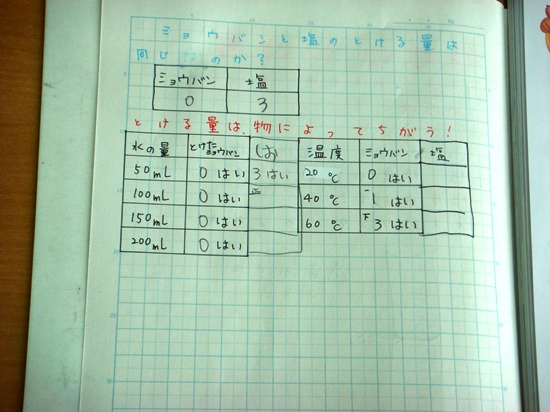 ミョウバンと塩のとける量は
同じ のか?
ミョウバン 塩
0 3
とける量は、物によってちがう!
水の量 とけたミョウバン しお
50mL 0はい 3はい
100mL 0はい 正
150mL 0はい
200mL 0はい
温度 ミョウバン 塩
20℃ 0はい
40℃ 一 1はい
60℃ 下 3はい